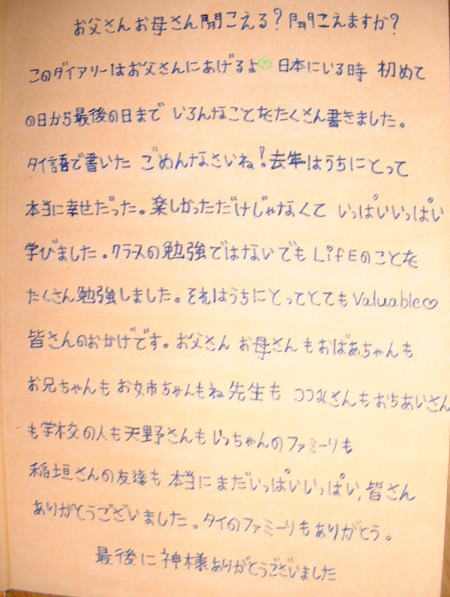 お父さんお母さん聞こえる?聞こえますか?
このダイアリーはお父さんにあげるよ♡日本にいる時 初めて
の日から最後の日まで いろんなことをたくさん書きました。
タイ語で書いた ごめんなさいね!去年はうちにとって
本当に幸せだった。楽しかっただけじゃなくて いっぱいいっぱい
学びました。クラスの勉強ではないでも LifEのことを
たくさん勉強しました。それはうちにとってとてもValuable♡
皆さんのおかげです。お父さん お母さん もおばあちゃんも
お兄ちゃんもお姉ちゃんもね 先生も さんもおちあいさん
も学校の人も天野さんも いっちゃんのファミーリも
稲垣さんの友達も 本当にまだいっぱいいっぱい,皆さん
ありがとうございました。タイのファミーリもありがとう。
最後に神様ありがとうございました